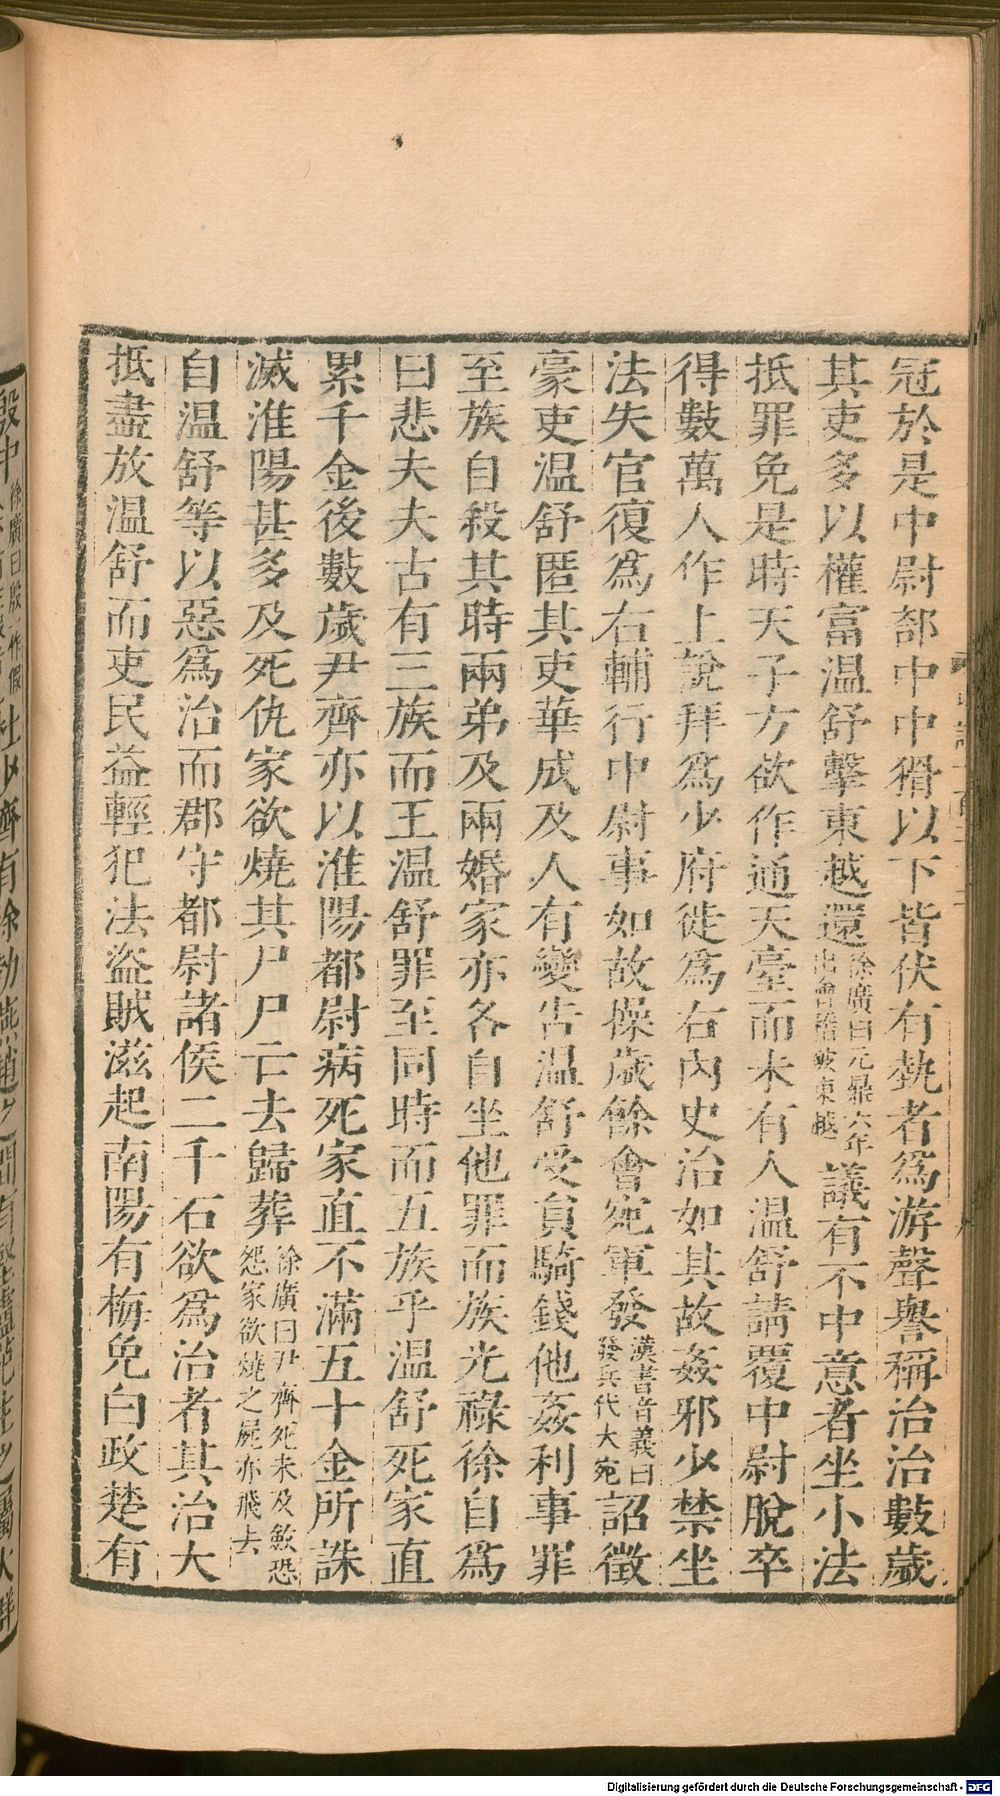 冠於是中尉部中中猾以下皆伏有埶者爲游聲譽稱治治數歲
其吏多以權富温舒擊東越還徐廣曰元鼎六年出會稽破東越議有不中意者坐小法
抵罪免是時天子方欲作通天臺而未有人温舒請覆中尉脫卒
得數萬人作上說拜爲少府徙爲右內史治如其故姦邪少禁坐
法失官復爲右輔行中尉事如故操歲餘會宛軍發漢書音義曰發兵代大宛詔徵
豪吏温舒匿其吏華成及人有變告温舒受員騎錢他姦利事罪
至族自殺其時兩弟及兩婚家亦各自坐他罪而族光祿徐自爲
曰悲夫夫古有三族而王温舒罪至同時而五族乎温舒死家直
累千金後數歲尹齊亦以淮陽都尉病死家直不滿五十金所誅
滅淮陽甚多及死仇家欲燒其尸尸亡去歸葬徐廣曰尹齊死未及斂恐怨家欲燒之屍亦飛去
自温舒等以惡爲治而郡守都尉諸侯二千石欲爲治者其治大
抵盡放温舒而吏民益輕犯法盜賊滋起南陽有梅免白政楚有
殷中徐廣曰殷一作假杜少齊有徐勃燕趙之間有堅盧范生之屬大群
Digitalisierung gefördert durch die Deutsche Forschungsgemeinschaft - DFG